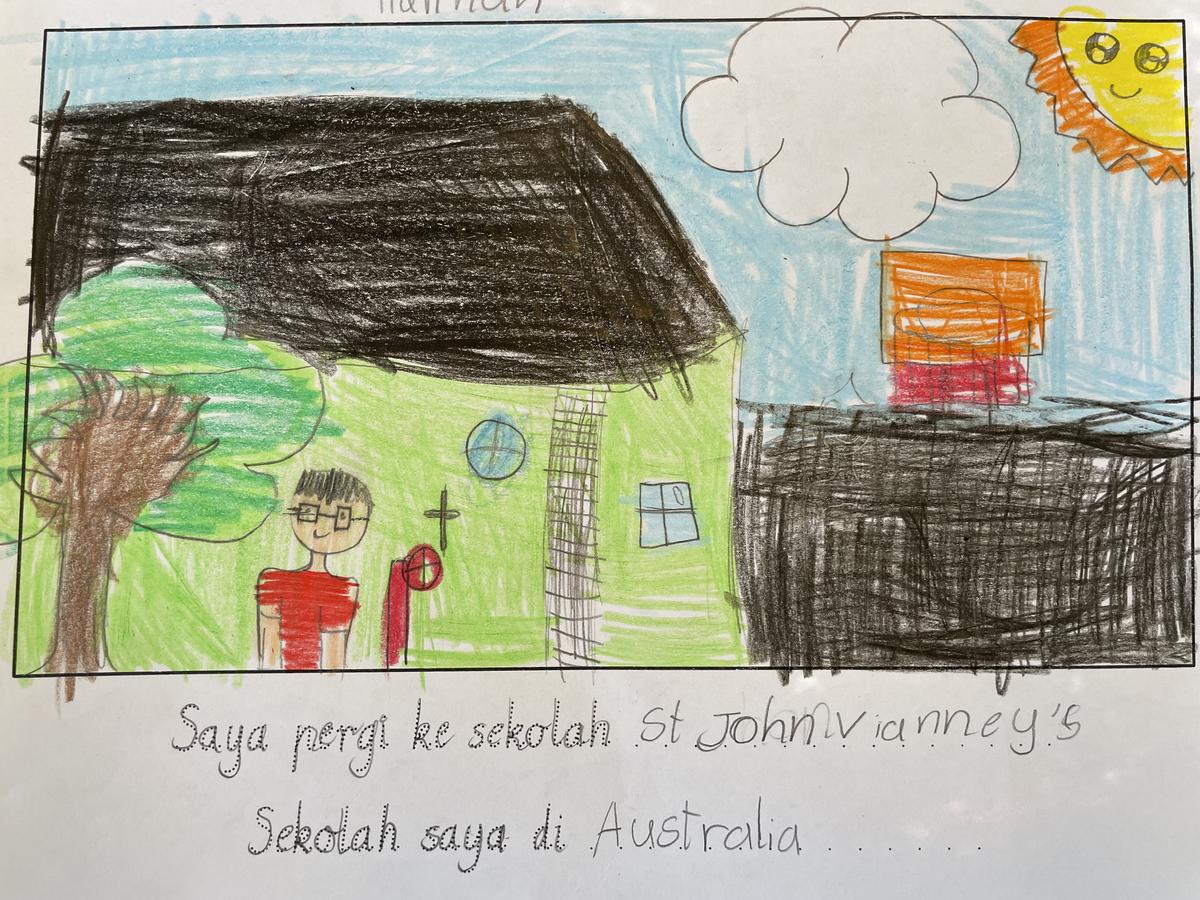 Hannah
Saya pergi ke sekolah St John Vianney's
Sekolah saya di Australia